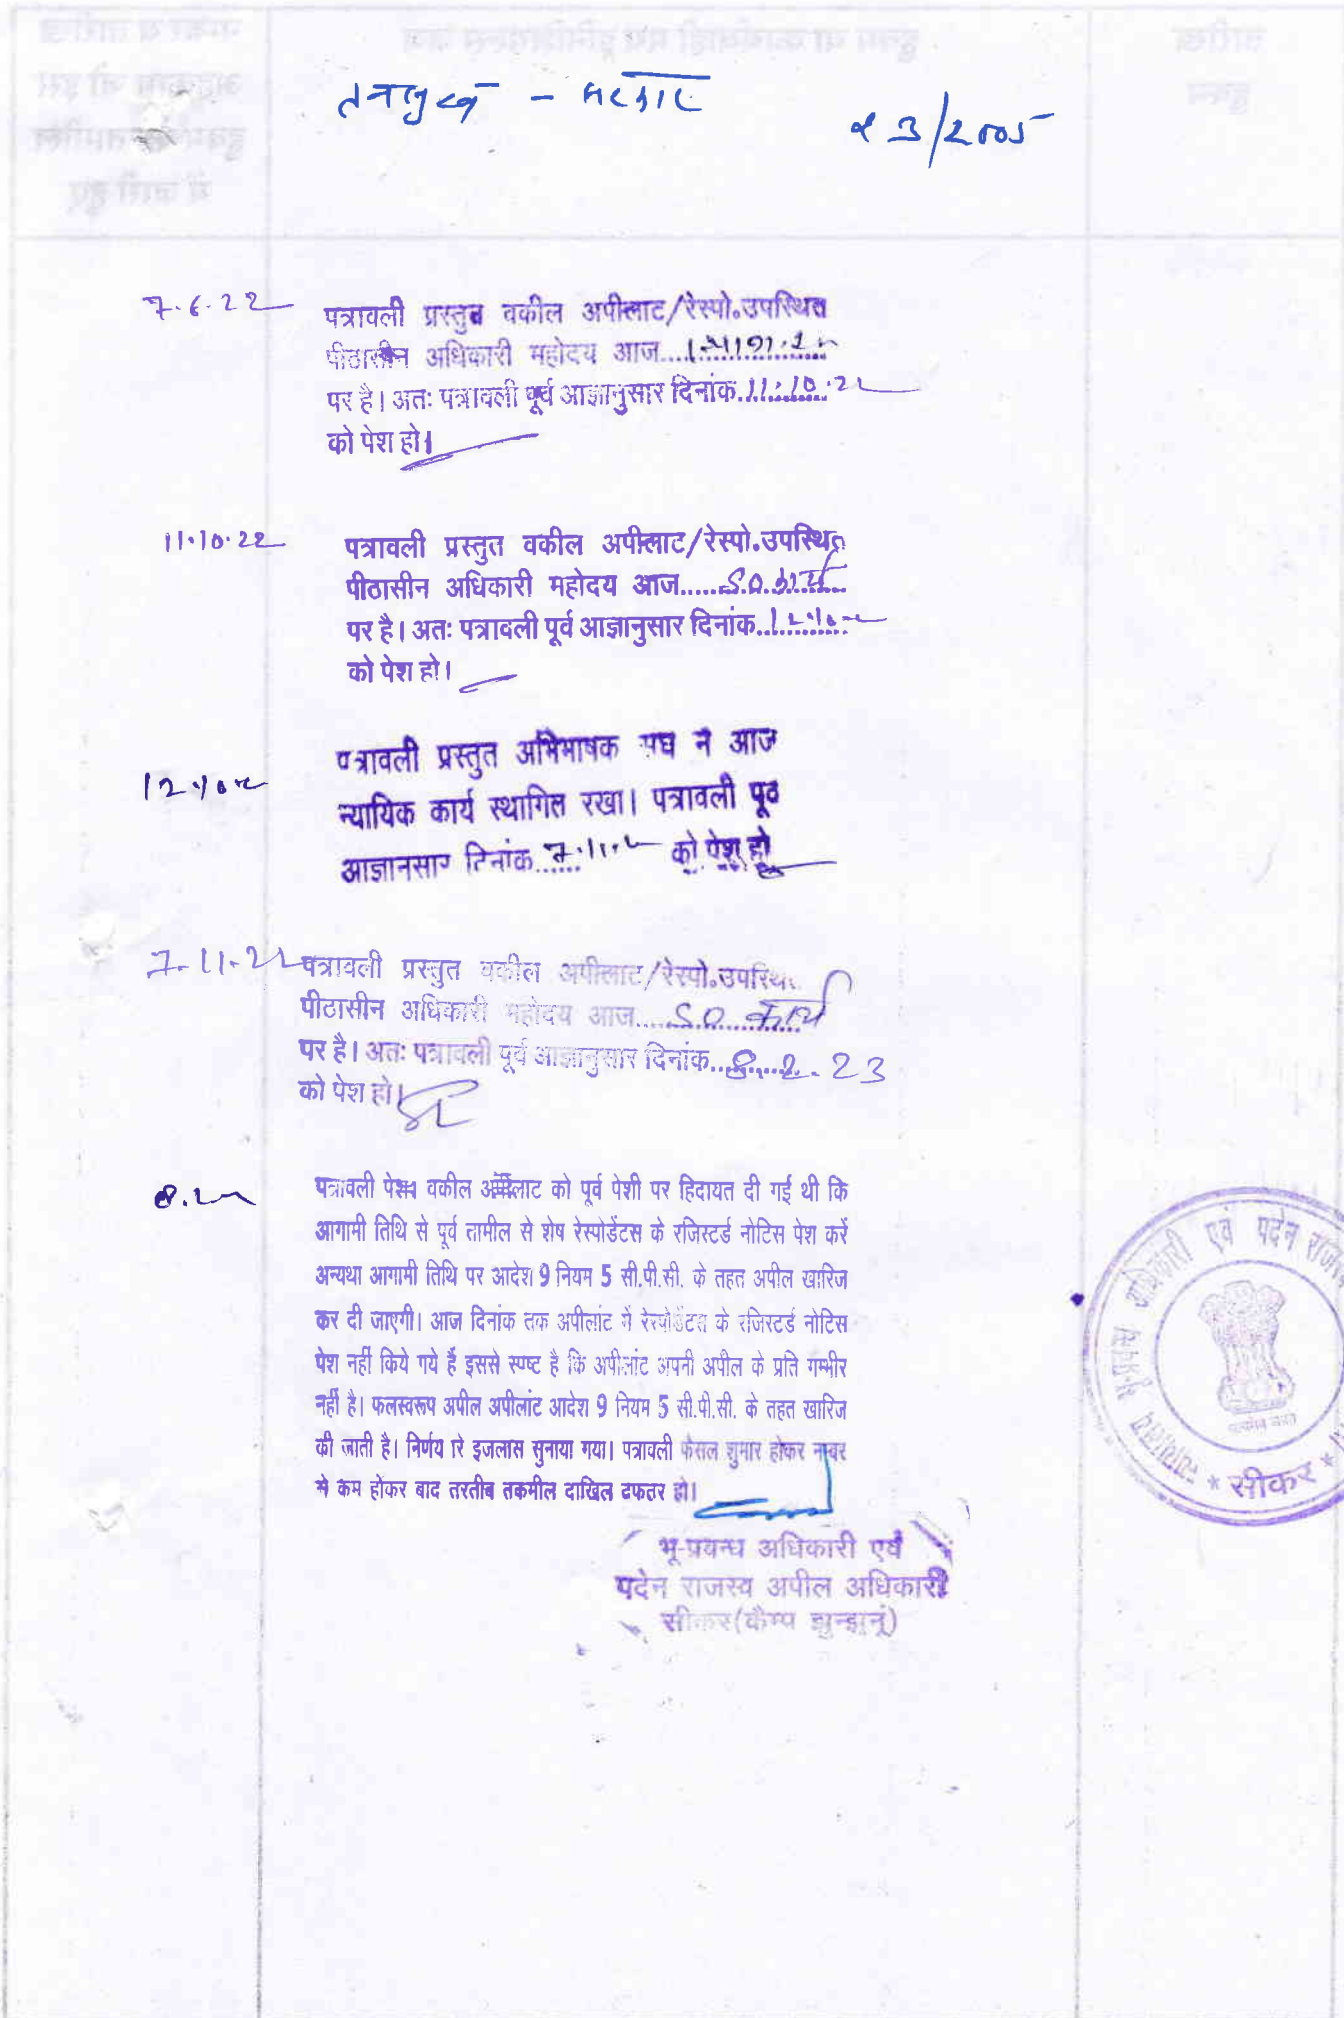 तनसुख - सरकार
23/2005
7.6.22
पत्रावली प्रस्तुत वकील अपीलाट/रेस्पो.उपस्थित
पीठासीन अधिकारी महोदय आज....
पर है। अतः पत्रावली पूर्व आज्ञानुसार दिनांक.11.10.22
को पेश हो।
11.10.22
पत्रावली प्रस्तुत वकील अपीलाट/रेस्पो.उपस्थित
पीठासीन अधिकारी महोदय आज......S.O. कार्य
पर है। अतः पत्रावली पूर्व आज्ञानुसार दिनांक..12.10.22
को पेश हो।
12.10.22
पत्रावली प्रस्तुत अभिभाषक संघ ने आज
न्यायिक कार्य स्थागित रखा। पत्रावली पूर्व
आज्ञानसार दिनांक..7.11.22 को पेश हो
7.11.22
पत्रावली प्रस्तुत वकील अपीलाट/रेस्पो.उपस्थित
पीठासीन अधिकारी महोदय आज....S.O. कार्य
पर है। अतः पत्रावली पूर्व आज्ञानुसार दिनांक..8.2.23
को पेश हो।
8.2.23
पत्रावली पेश। वकील अपीलाट को पूर्व पेशी पर हिदायत दी गई थी कि
आगामी तिथि से पूर्व तामील से शेष रेस्पोडेंटस के रजिस्टर्ड नोटिस पेश करें
अन्यथा आगामी तिथि पर आदेश 9 नियम 5 सी.पी.सी. के तहत अपील खारिज
कर दी जाएगी। आज दिनांक तक अपीलांट में रेस्पोडेंटस के रजिस्टर्ड नोटिस
पेश नहीं किये गये हैं इससे स्पष्ट है कि अपीलांट अपनी अपील के प्रति गम्भीर
नहीं है। फलस्वरूप अपील अपीलांट आदेश 9 नियम 5 सी.पी.सी. के तहत खारिज
की जाती है। निर्णय सरे इजलास सुनाया गया। पत्रावली फैसल शुमार होकर नम्बर
से कम होकर बाद तरतीब तकमील दाखिल दफतर हो।
भू-प्रबन्ध अधिकारी एवं
पदेन राजस्व अपील अधिकारी
सीकर(कैम्प झुन्झुनूं)
भू-प्रबन्ध अधिकारी एवं पदेन
* सीकर *